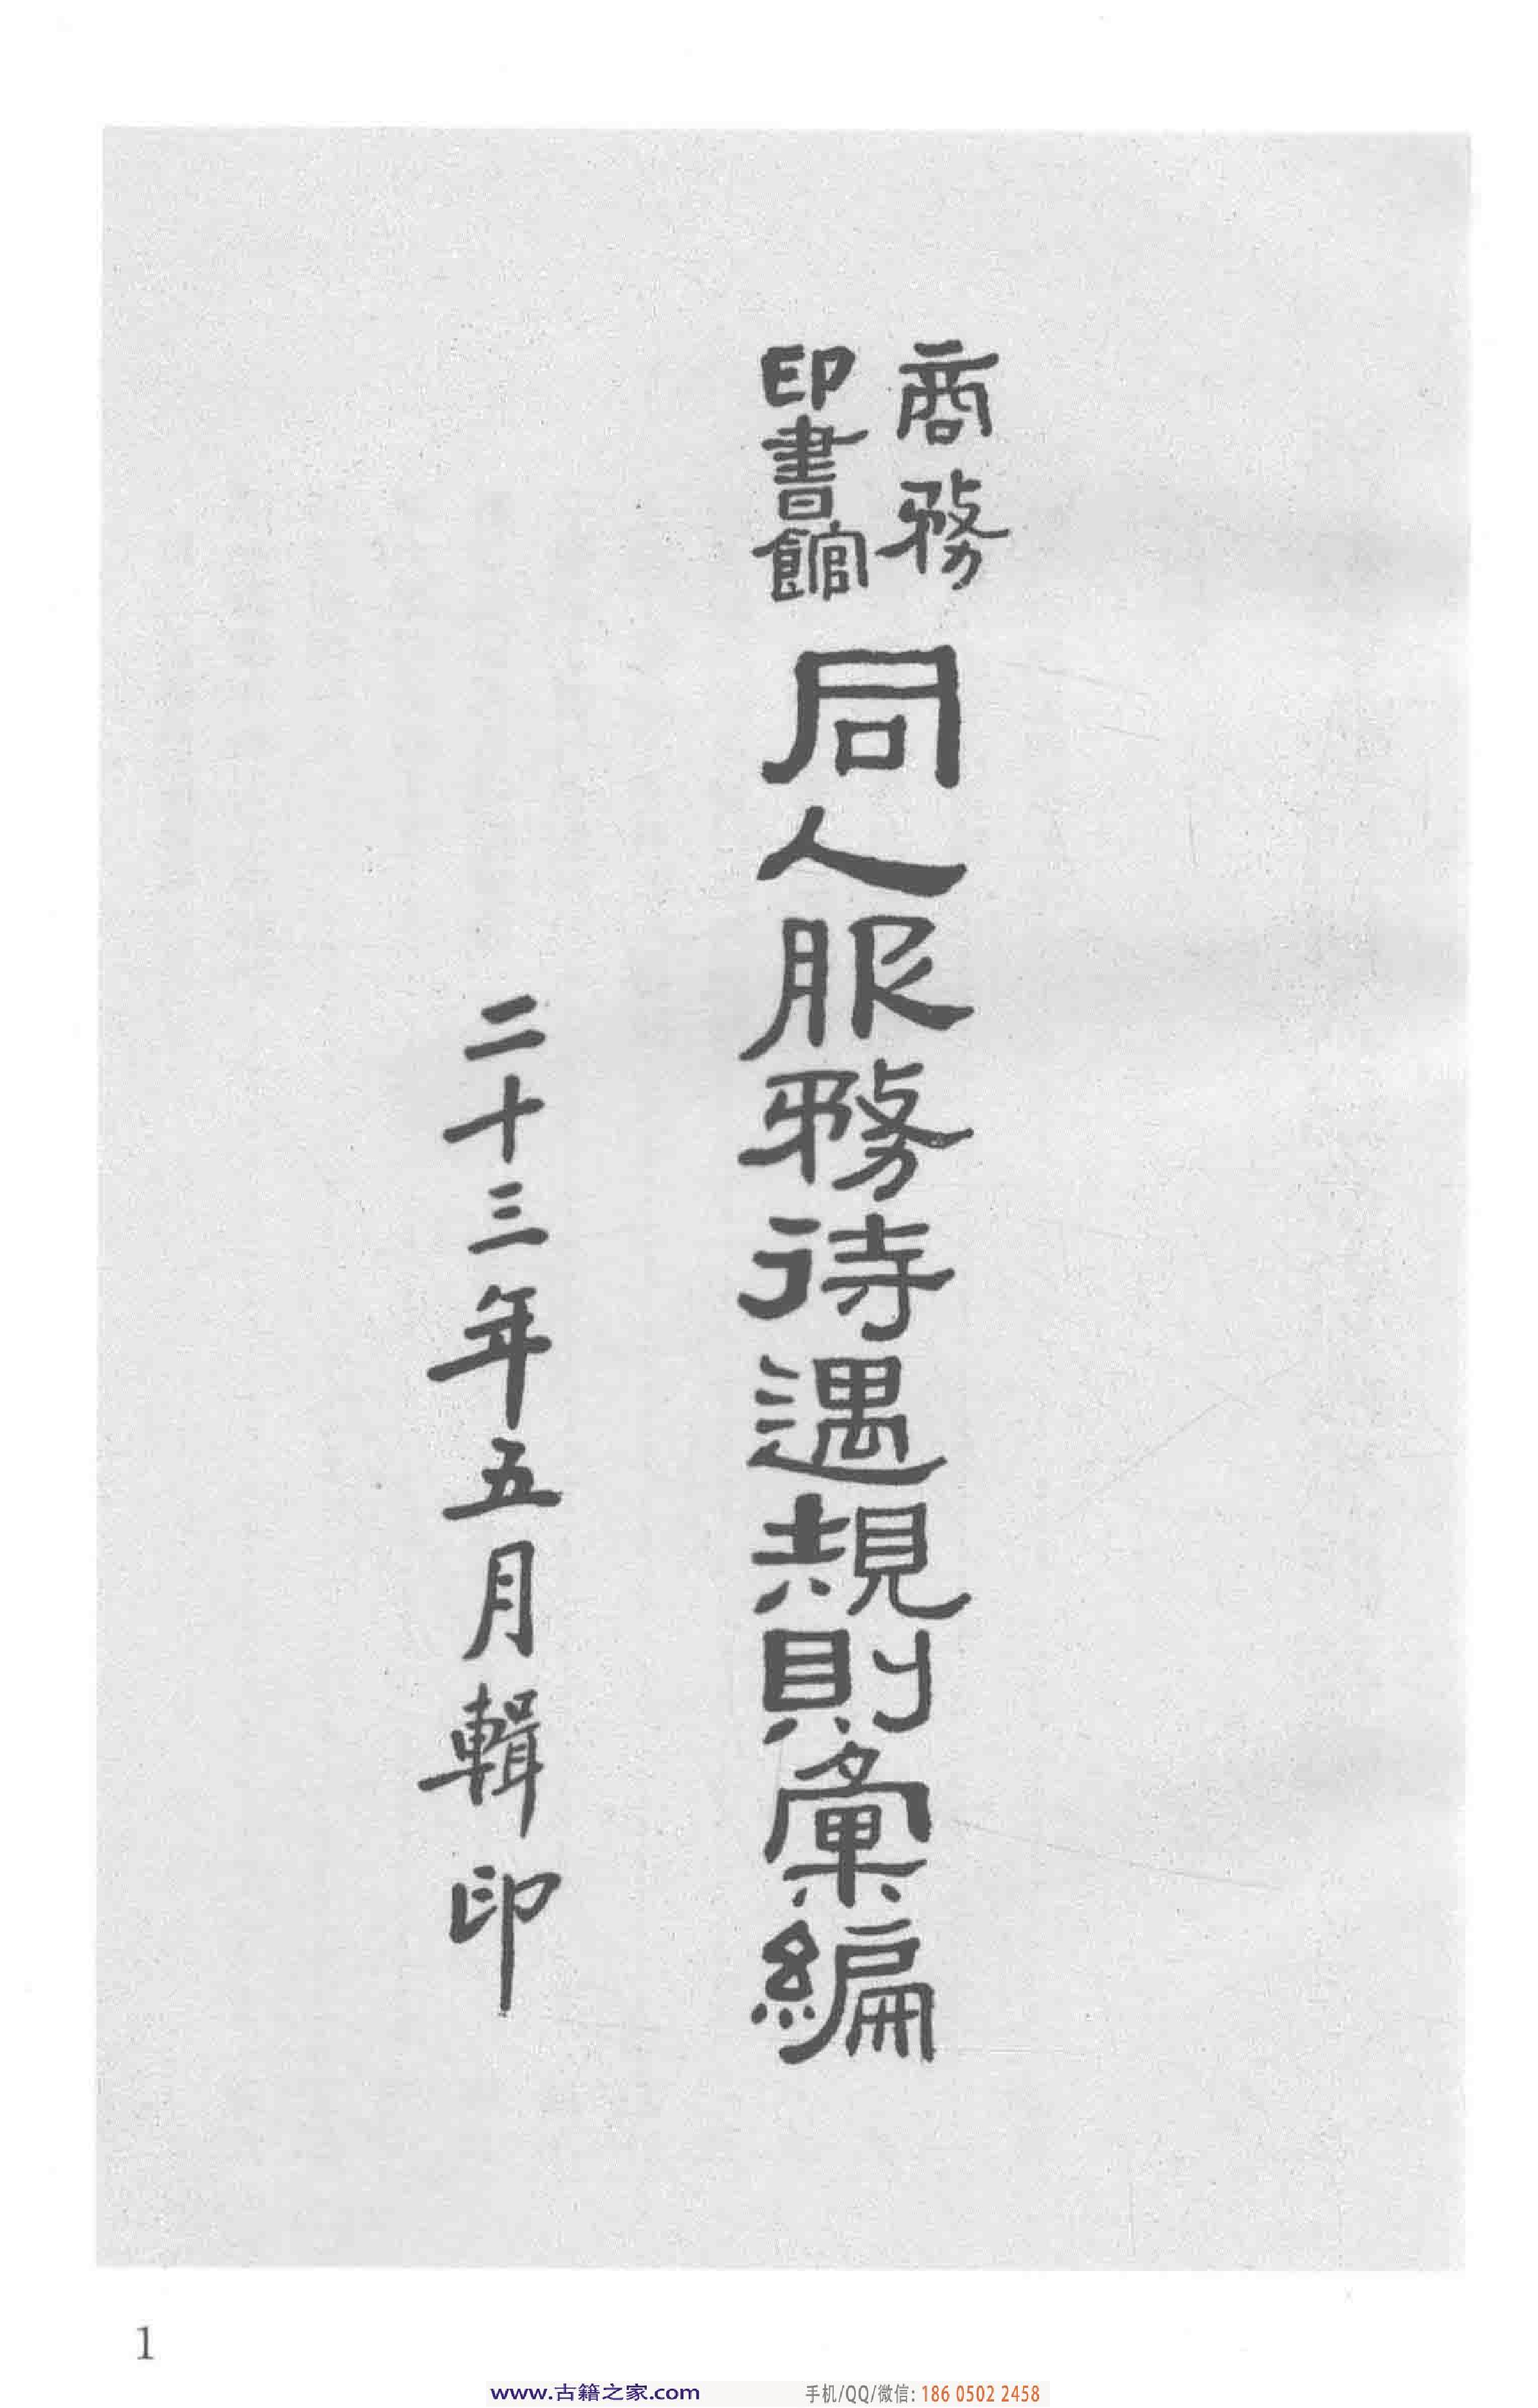 商務
印書館
同人服務待遇規則彙編
二十三年五月輯印
1
www.古籍之家.com
手机/QQ/微信: 186 0502 2458